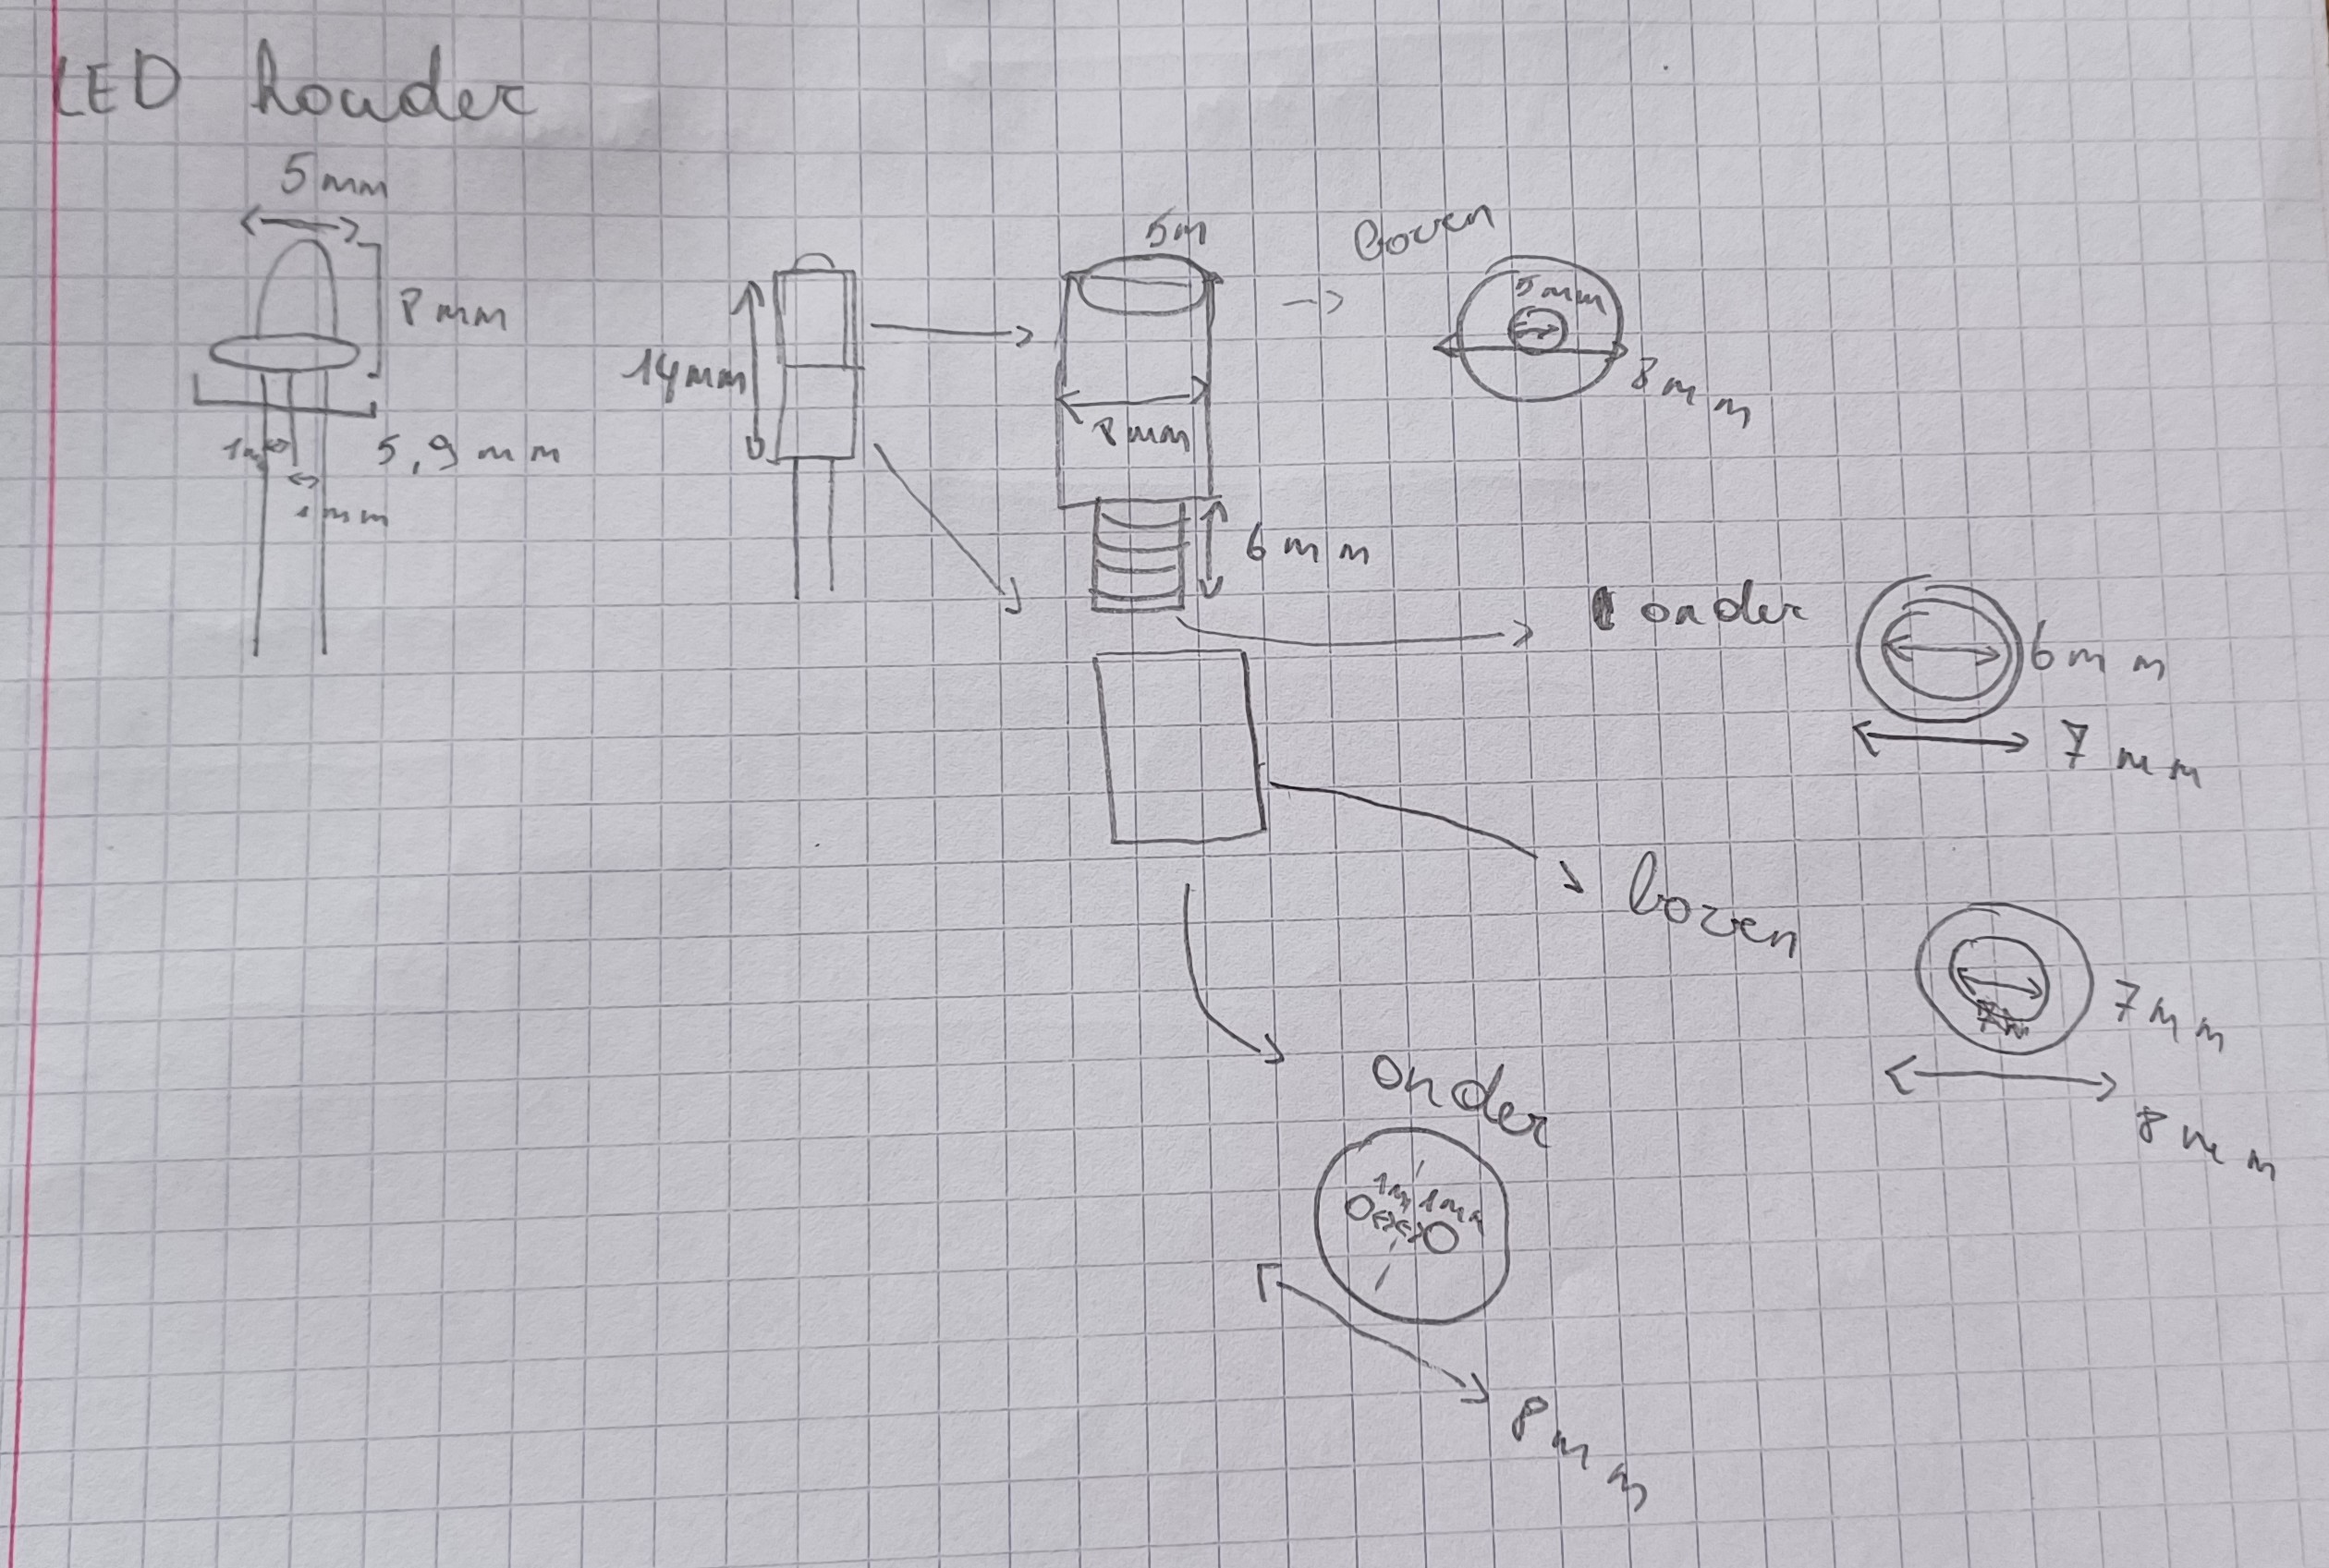 LED houder
5mm
8mm
5,9mm
1mm
14mm
5m
8mm
6mm
boven
5mm
8mm
onder
6mm
7mm
boven
7m
7mm
8mm
onder
1m 1mm
8mm